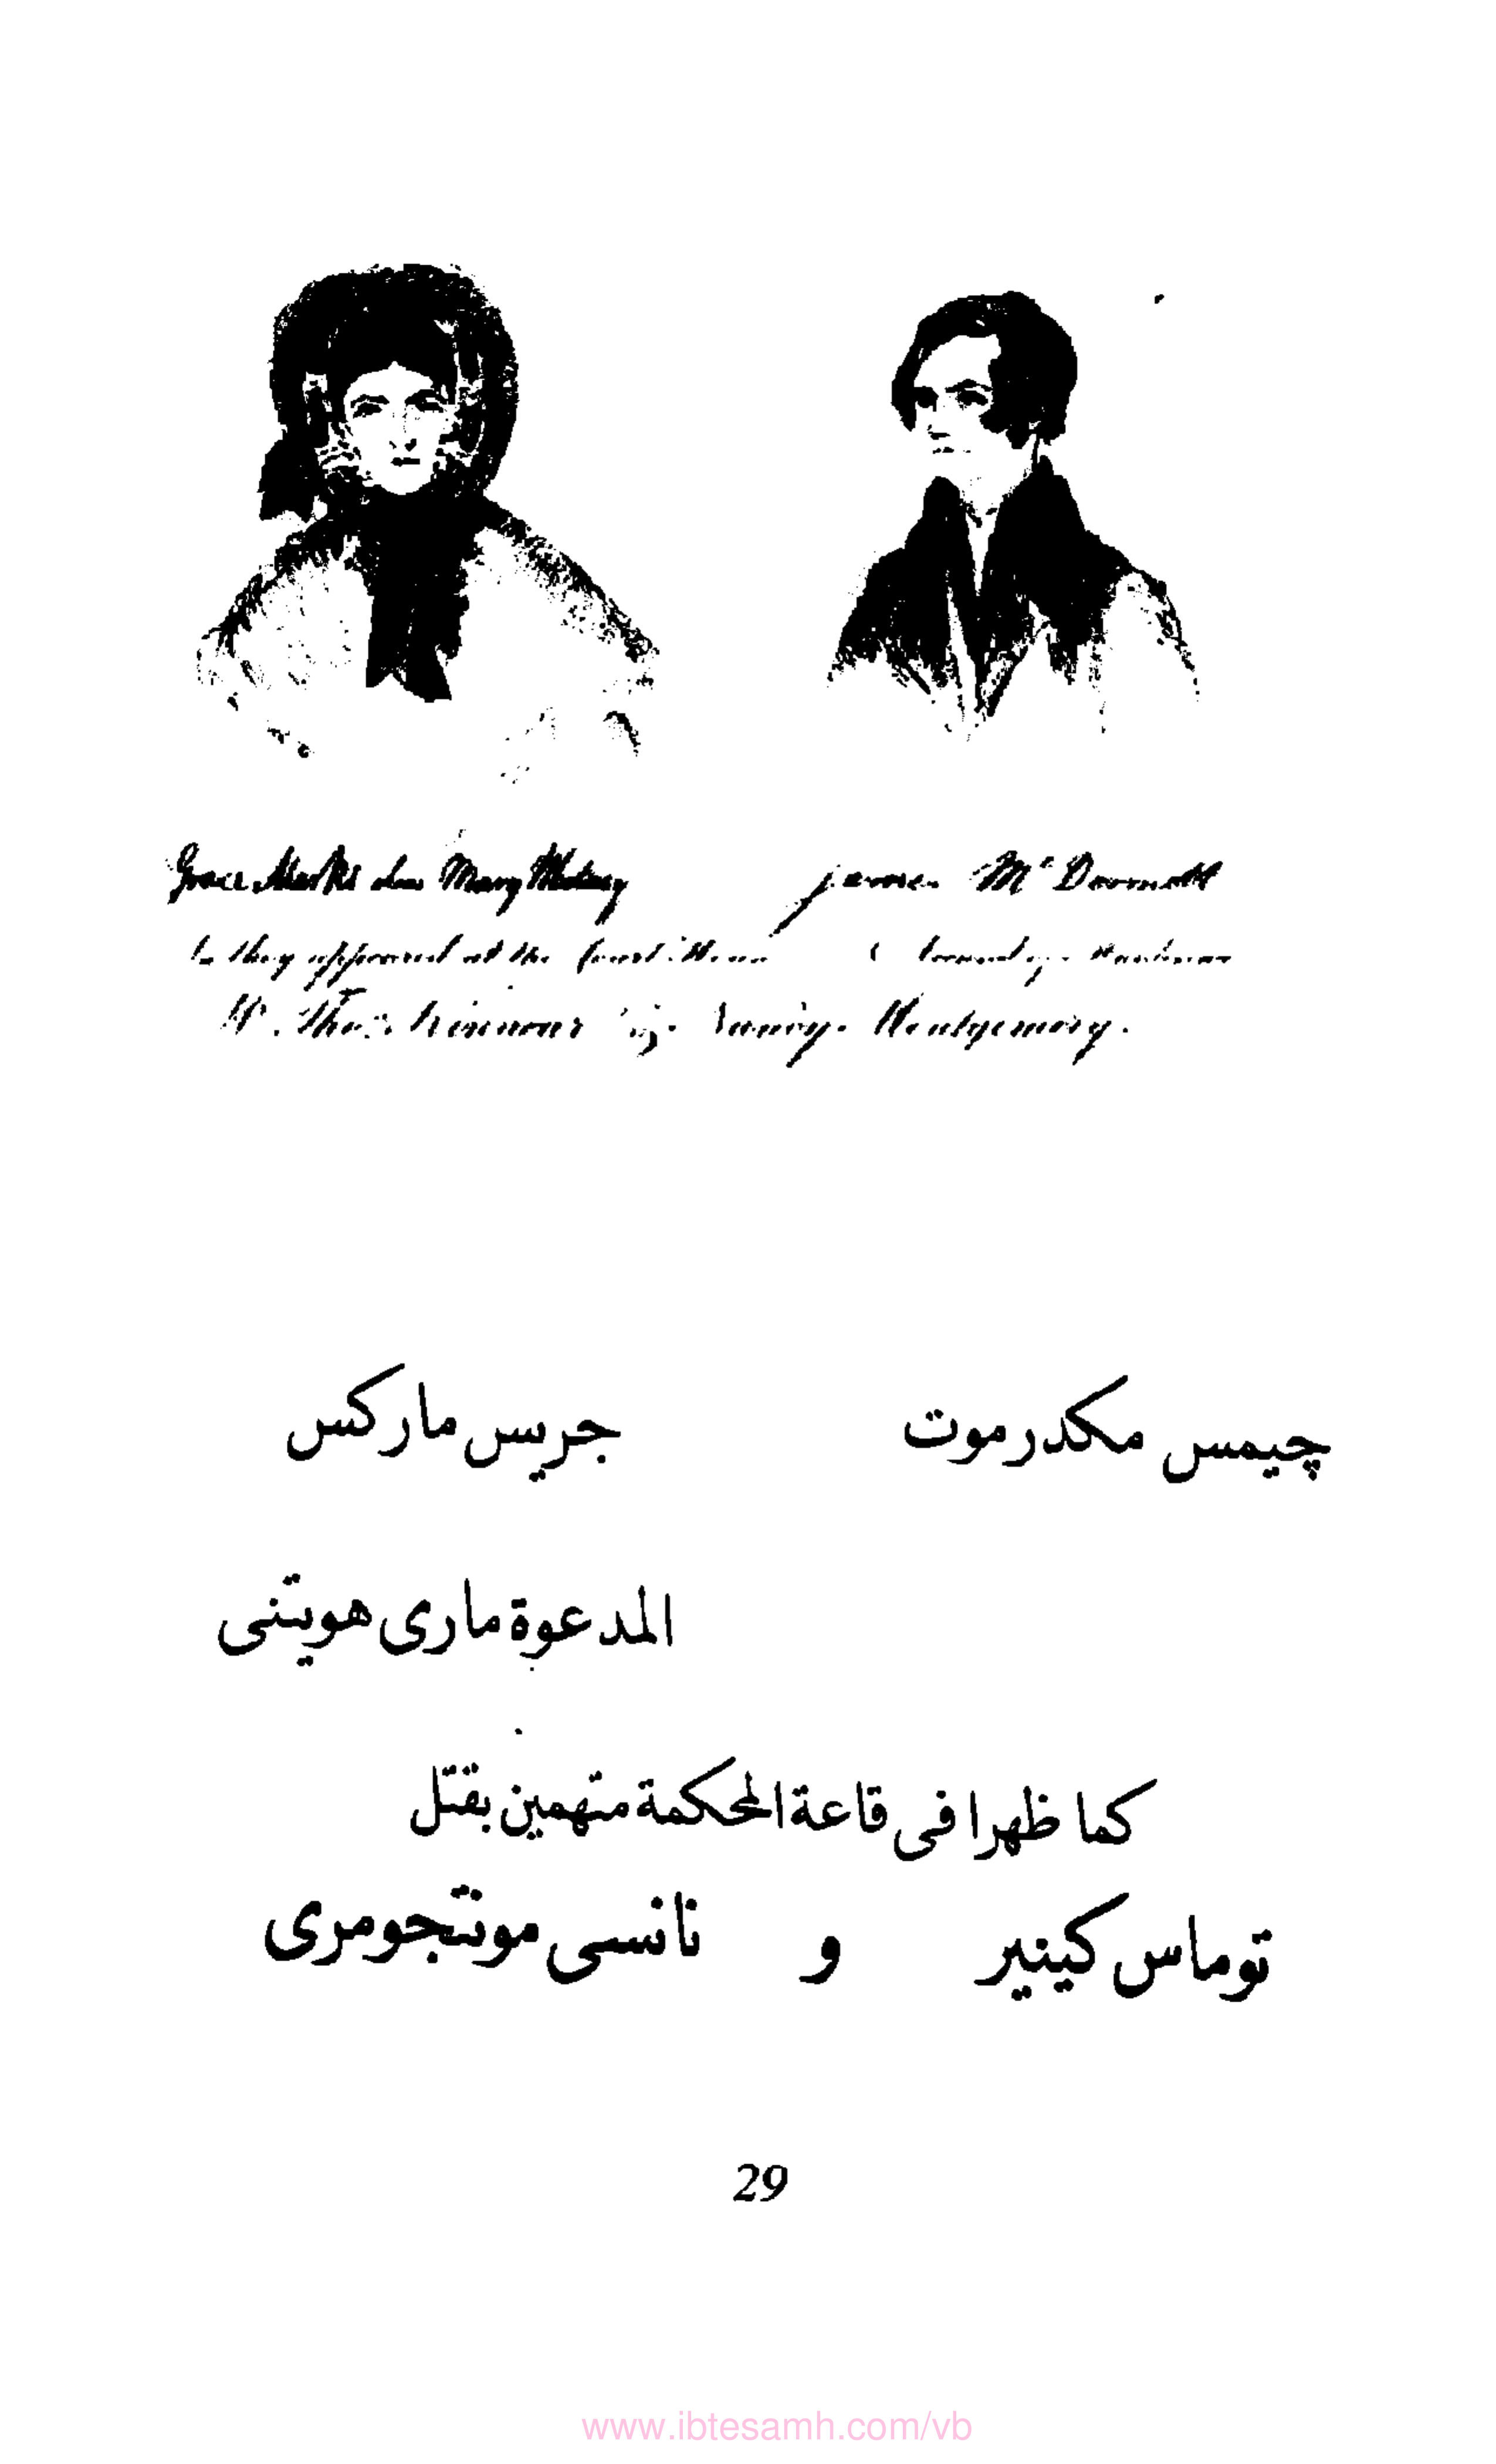 Grace Marks alias Mary Whitney James McDermott
they appeared at the Court House. Accused of Murdering
Mr. Thos. Kinnear & Nancy Montgomery.
چيمس مكدرموت جريس ماركس
المدعوة مارى هويتنى
كما ظهرا فى قاعة المحكمة متهمين بقتل
توماس كينير و نانسى مونتجومرى
29
www.ibtesamh.com/vb